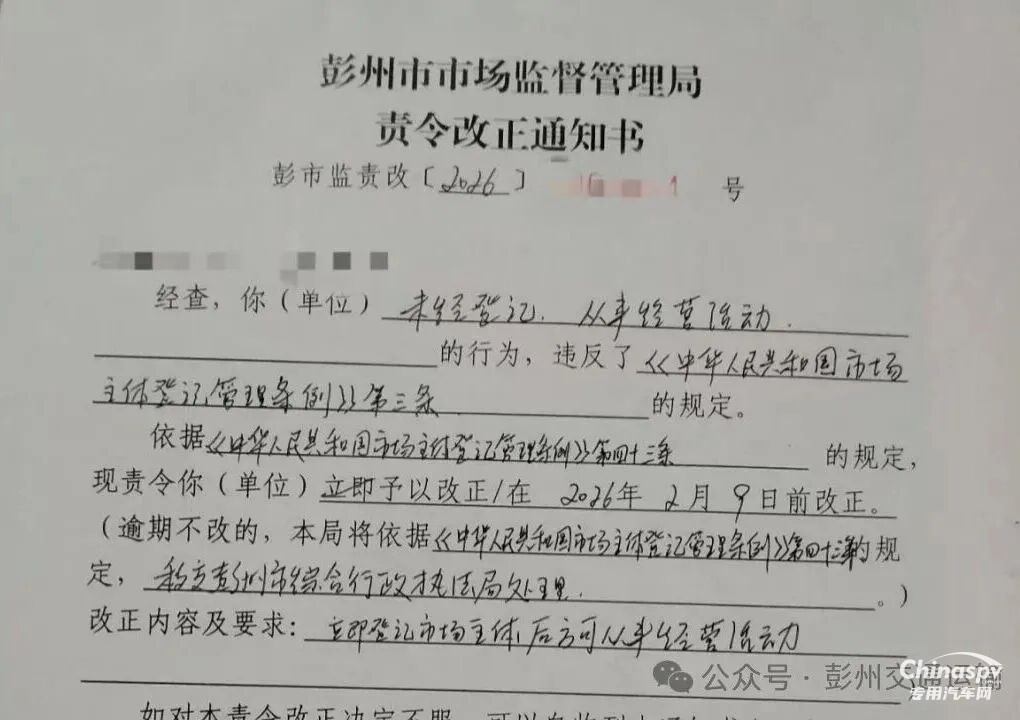 彭州市市场监督管理局
责令改正通知书
彭市监责改〔2026〕 号
经查，你（单位）未经登记．从事经营活动．
的行为，违反了《中华人民共和国市场
主体登记管理条例》第三条 的规定。
依据《中华人民共和国市场主体登记管理条例》第四十三条 的规定，
现责令你（单位）立即予以改正/在 2026年 2 月 9 日前改正。
（逾期不改的，本局将依据《中华人民共和国市场主体登记管理条例》第四十三条的规
定，移交彭州市综合行政执法局处理． 。）
改正内容及要求：立即登记市场主体，后方可从事经营活动
公众号·彭州交通运输
Chinaspv
专用汽车网
如对本责令改正决定不服，可以自收到本通知书